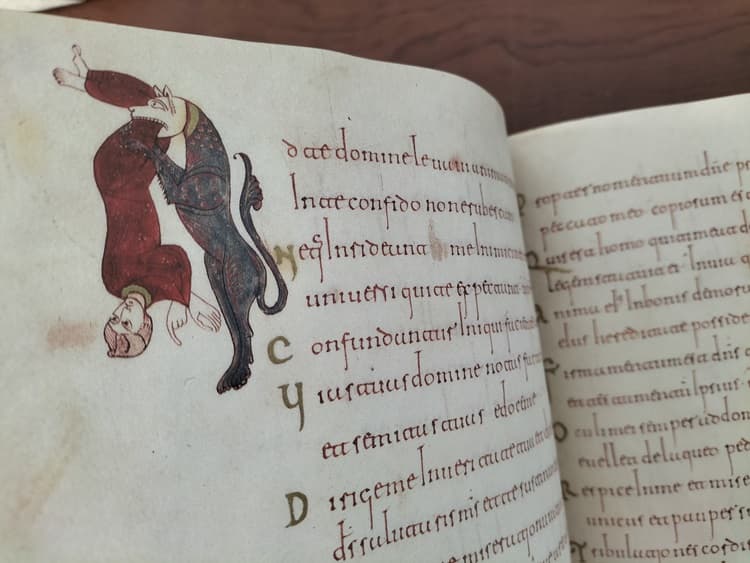 d te domine levavi animam
In te confido non erubescam
Neq; Inrideant me Inimici
universi qui te expectant
Confundantur Iniqui
Vias tuas domine notas
et semitas tuas edoce me
Dirige me In veritate tua
ds salutaris ms et te
me misera
Propter nomen tuum dne
peccato meo copiosum
Quis est homo qui timeat
legem statuit ei In via
Anima eius In bonis
eius hereditate
Firmamentum est dns
et testamentum Ipsius
Oculi mei semper ad dom
evellet de laqueo ped
Respice In me et mise
unicus et pauper s
Tribulationes cordis